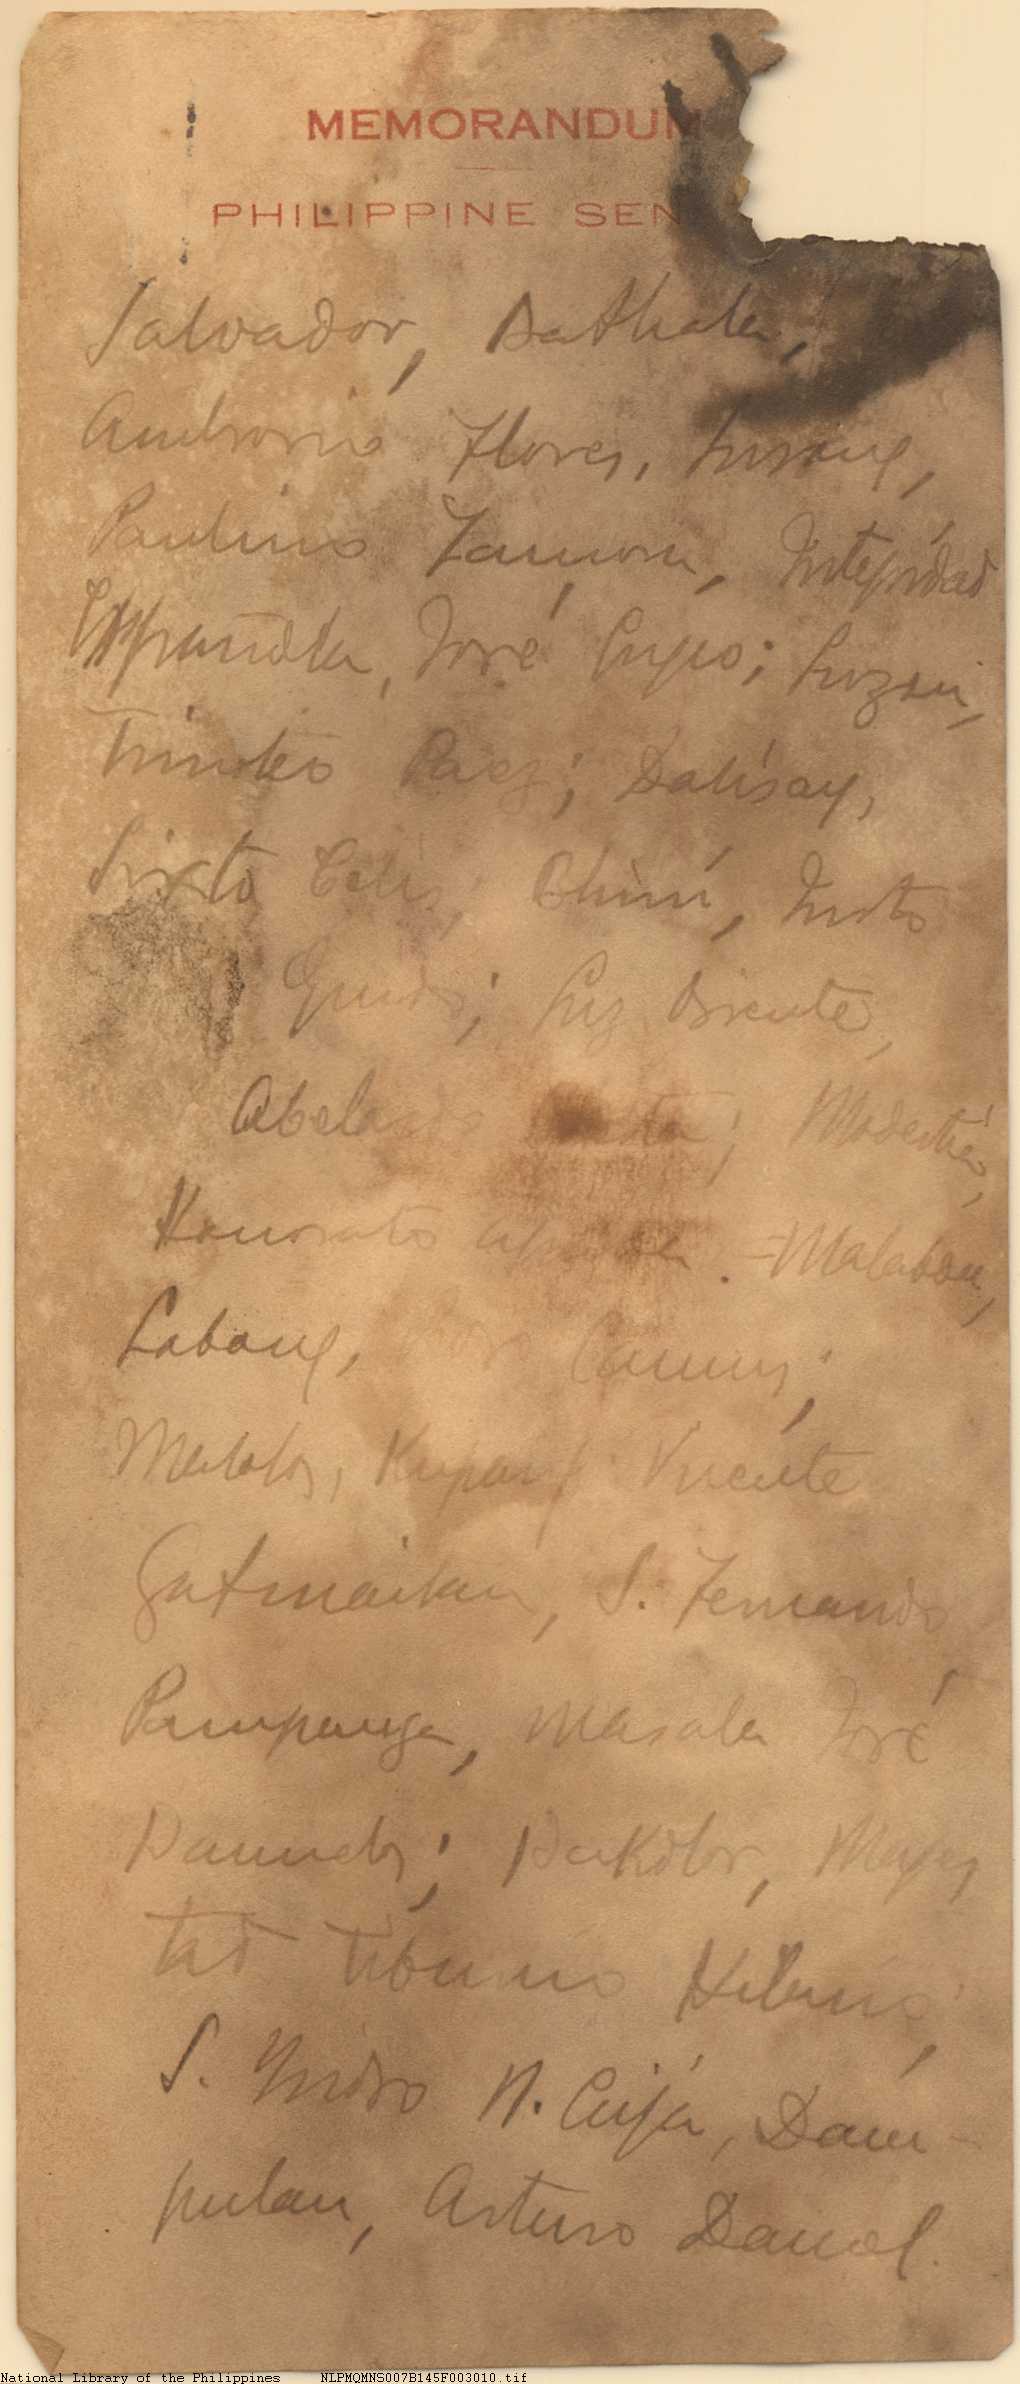 MEMORANDUM
PHILIPPINE SEN
Salvador, Bathala,
Ambrosio Flores, Lusong,
Paulino Zamora, Integridad
Española, José Lupeo; Luzon,
Timoteo Paez; Dalisay,
Sixto Celis; Bhini, Justo
Guido; Luz Oriente,
Abelardo; Modestia,
Honorato - Malabon,
Labong, Camus;
Malolos, Kupang Vicente
Gatmaitan, S. Fernando,
Pampanga, Masala José
Bañuelos; Bakolor, Majes
tad Tiburcio Hilario;
S. Ysidro N. Ecija, Dam-
pulan, Arturo Dancel.
National Library of the Philippines NLPMQMNS007B145F003010.tif